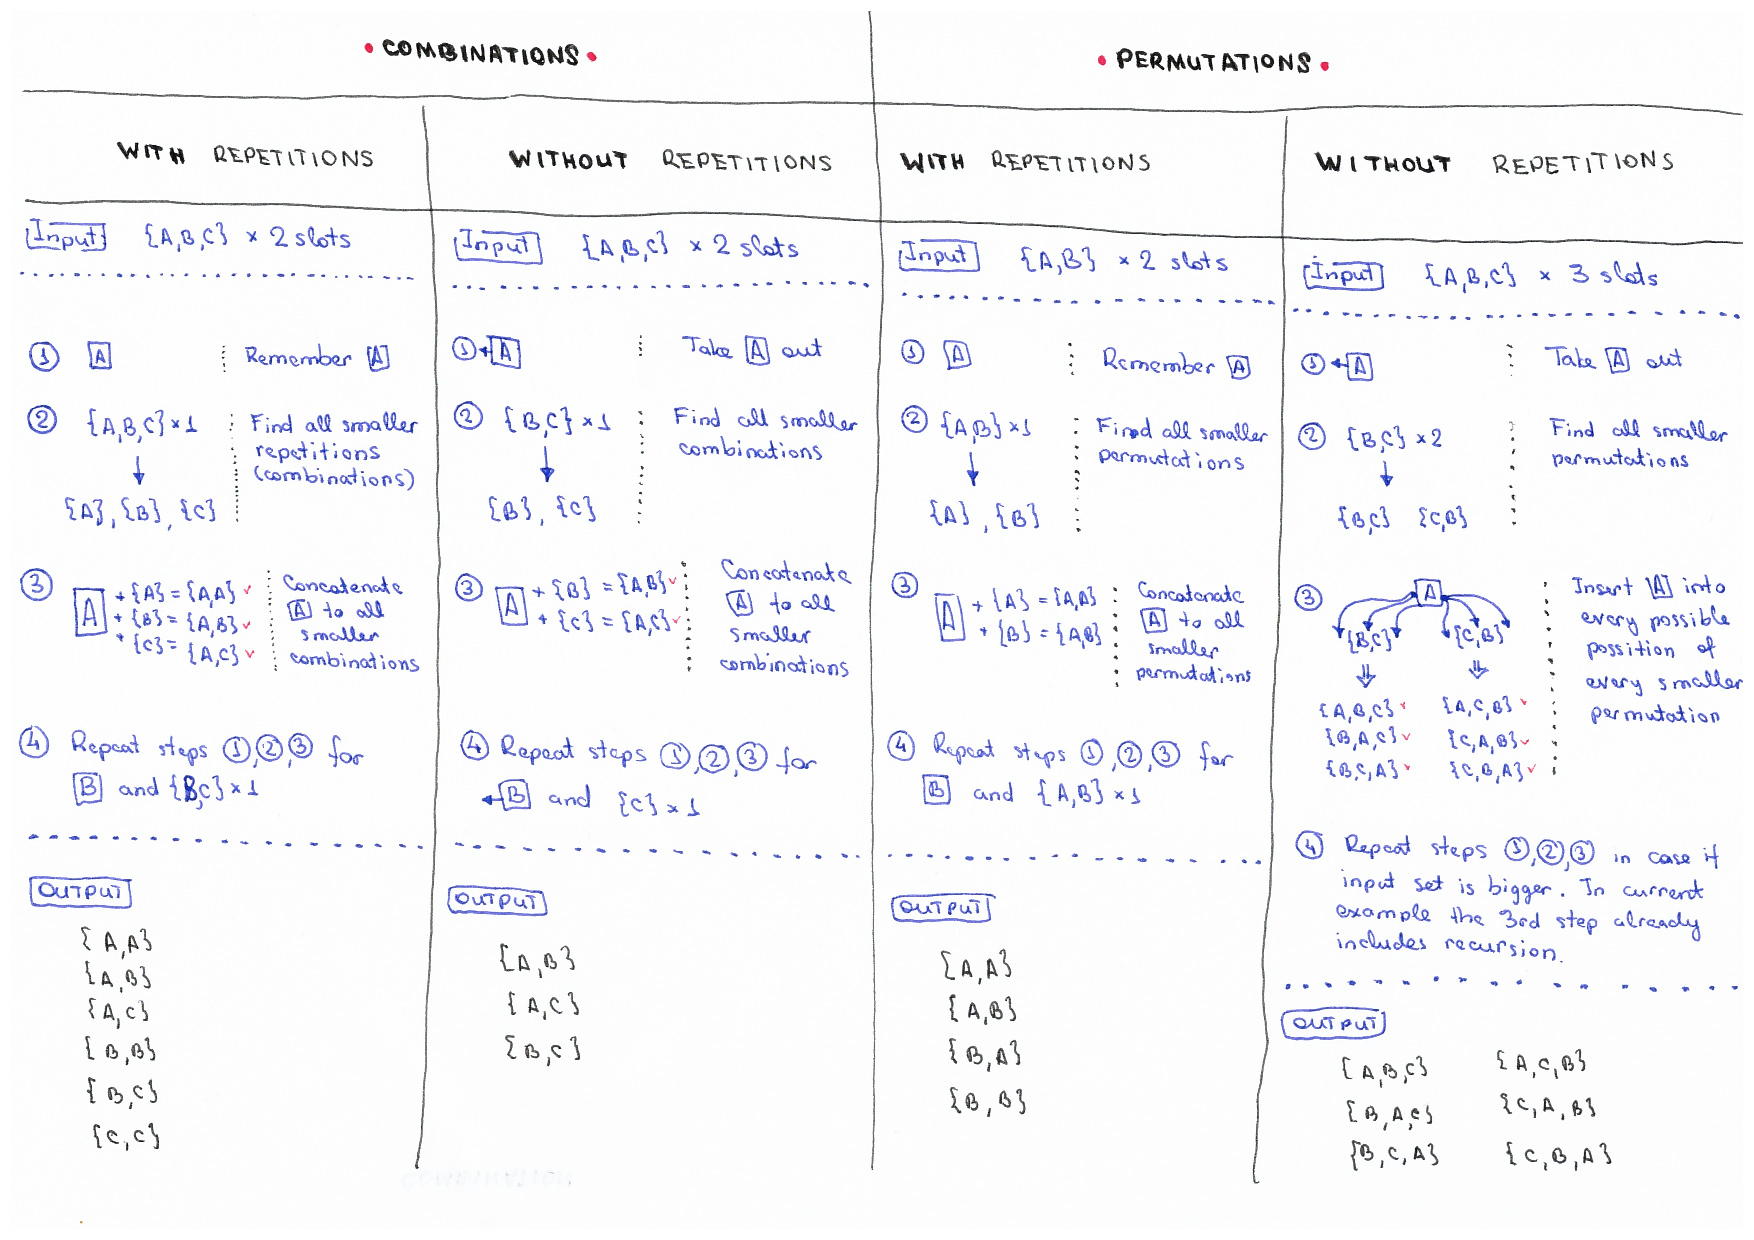 • COMBINATIONS •
WITH REPETITIONS
Input {A,B,C} × 2 slots
① A Remember A
② {A,B,C} × 1 Find all smaller
repetitions
(combinations)
{A}, {B}, {C}
③ A + {A} = {A,A} ✓ Concatenate
+ {B} = {A,B} ✓ A to all
+ {C} = {A,C} ✓ smaller
combinations
④ Repeat steps ①,②,③ for
B and {B,C} × 1
OUTPUT
{A,A}
{A,B}
{A,C}
{B,B}
{B,C}
{C,C}
WITHOUT REPETITIONS
Input {A,B,C} × 2 slots
① ←A Take A out
② {B,C} × 1 Find all smaller
combinations
{B}, {C}
③ A + {B} = {A,B} ✓ Concatenate
+ {C} = {A,C} ✓ A to all
smaller
combinations
④ Repeat steps ①,②,③ for
←B and {C} × 1
OUTPUT
{A,B}
{A,C}
{B,C}
• PERMUTATIONS •
WITH REPETITIONS
Input {A,B} × 2 slots
① A Remember A
② {A,B} × 1 Find all smaller
permutations
{A}, {B}
③ A + {A} = {A,A} Concatenate
+ {B} = {A,B} A to all
smaller
permutations
④ Repeat steps ①,②,③ for
B and {A,B} × 1
OUTPUT
{A,A}
{A,B}
{B,A}
{B,B}
WITHOUT REPETITIONS
Input {A,B,C} × 3 slots
① ←A Take A out
② {B,C} × 2 Find all smaller
permutations
{B,C} {C,B}
③ A Insert A into
{B,C} {C,B} every possible
possition of
every smaller
permutation
{A,B,C} ✓ {A,C,B} ✓
{B,A,C} ✓ {C,A,B} ✓
{B,C,A} ✓ {C,B,A} ✓
④ Repeat steps ①,②,③ in case if
input set is bigger. In current
example the 3rd step already
includes recursion.
OUTPUT
{A,B,C} {A,C,B}
{B,A,C} {C,A,B}
{B,C,A} {C,B,A}